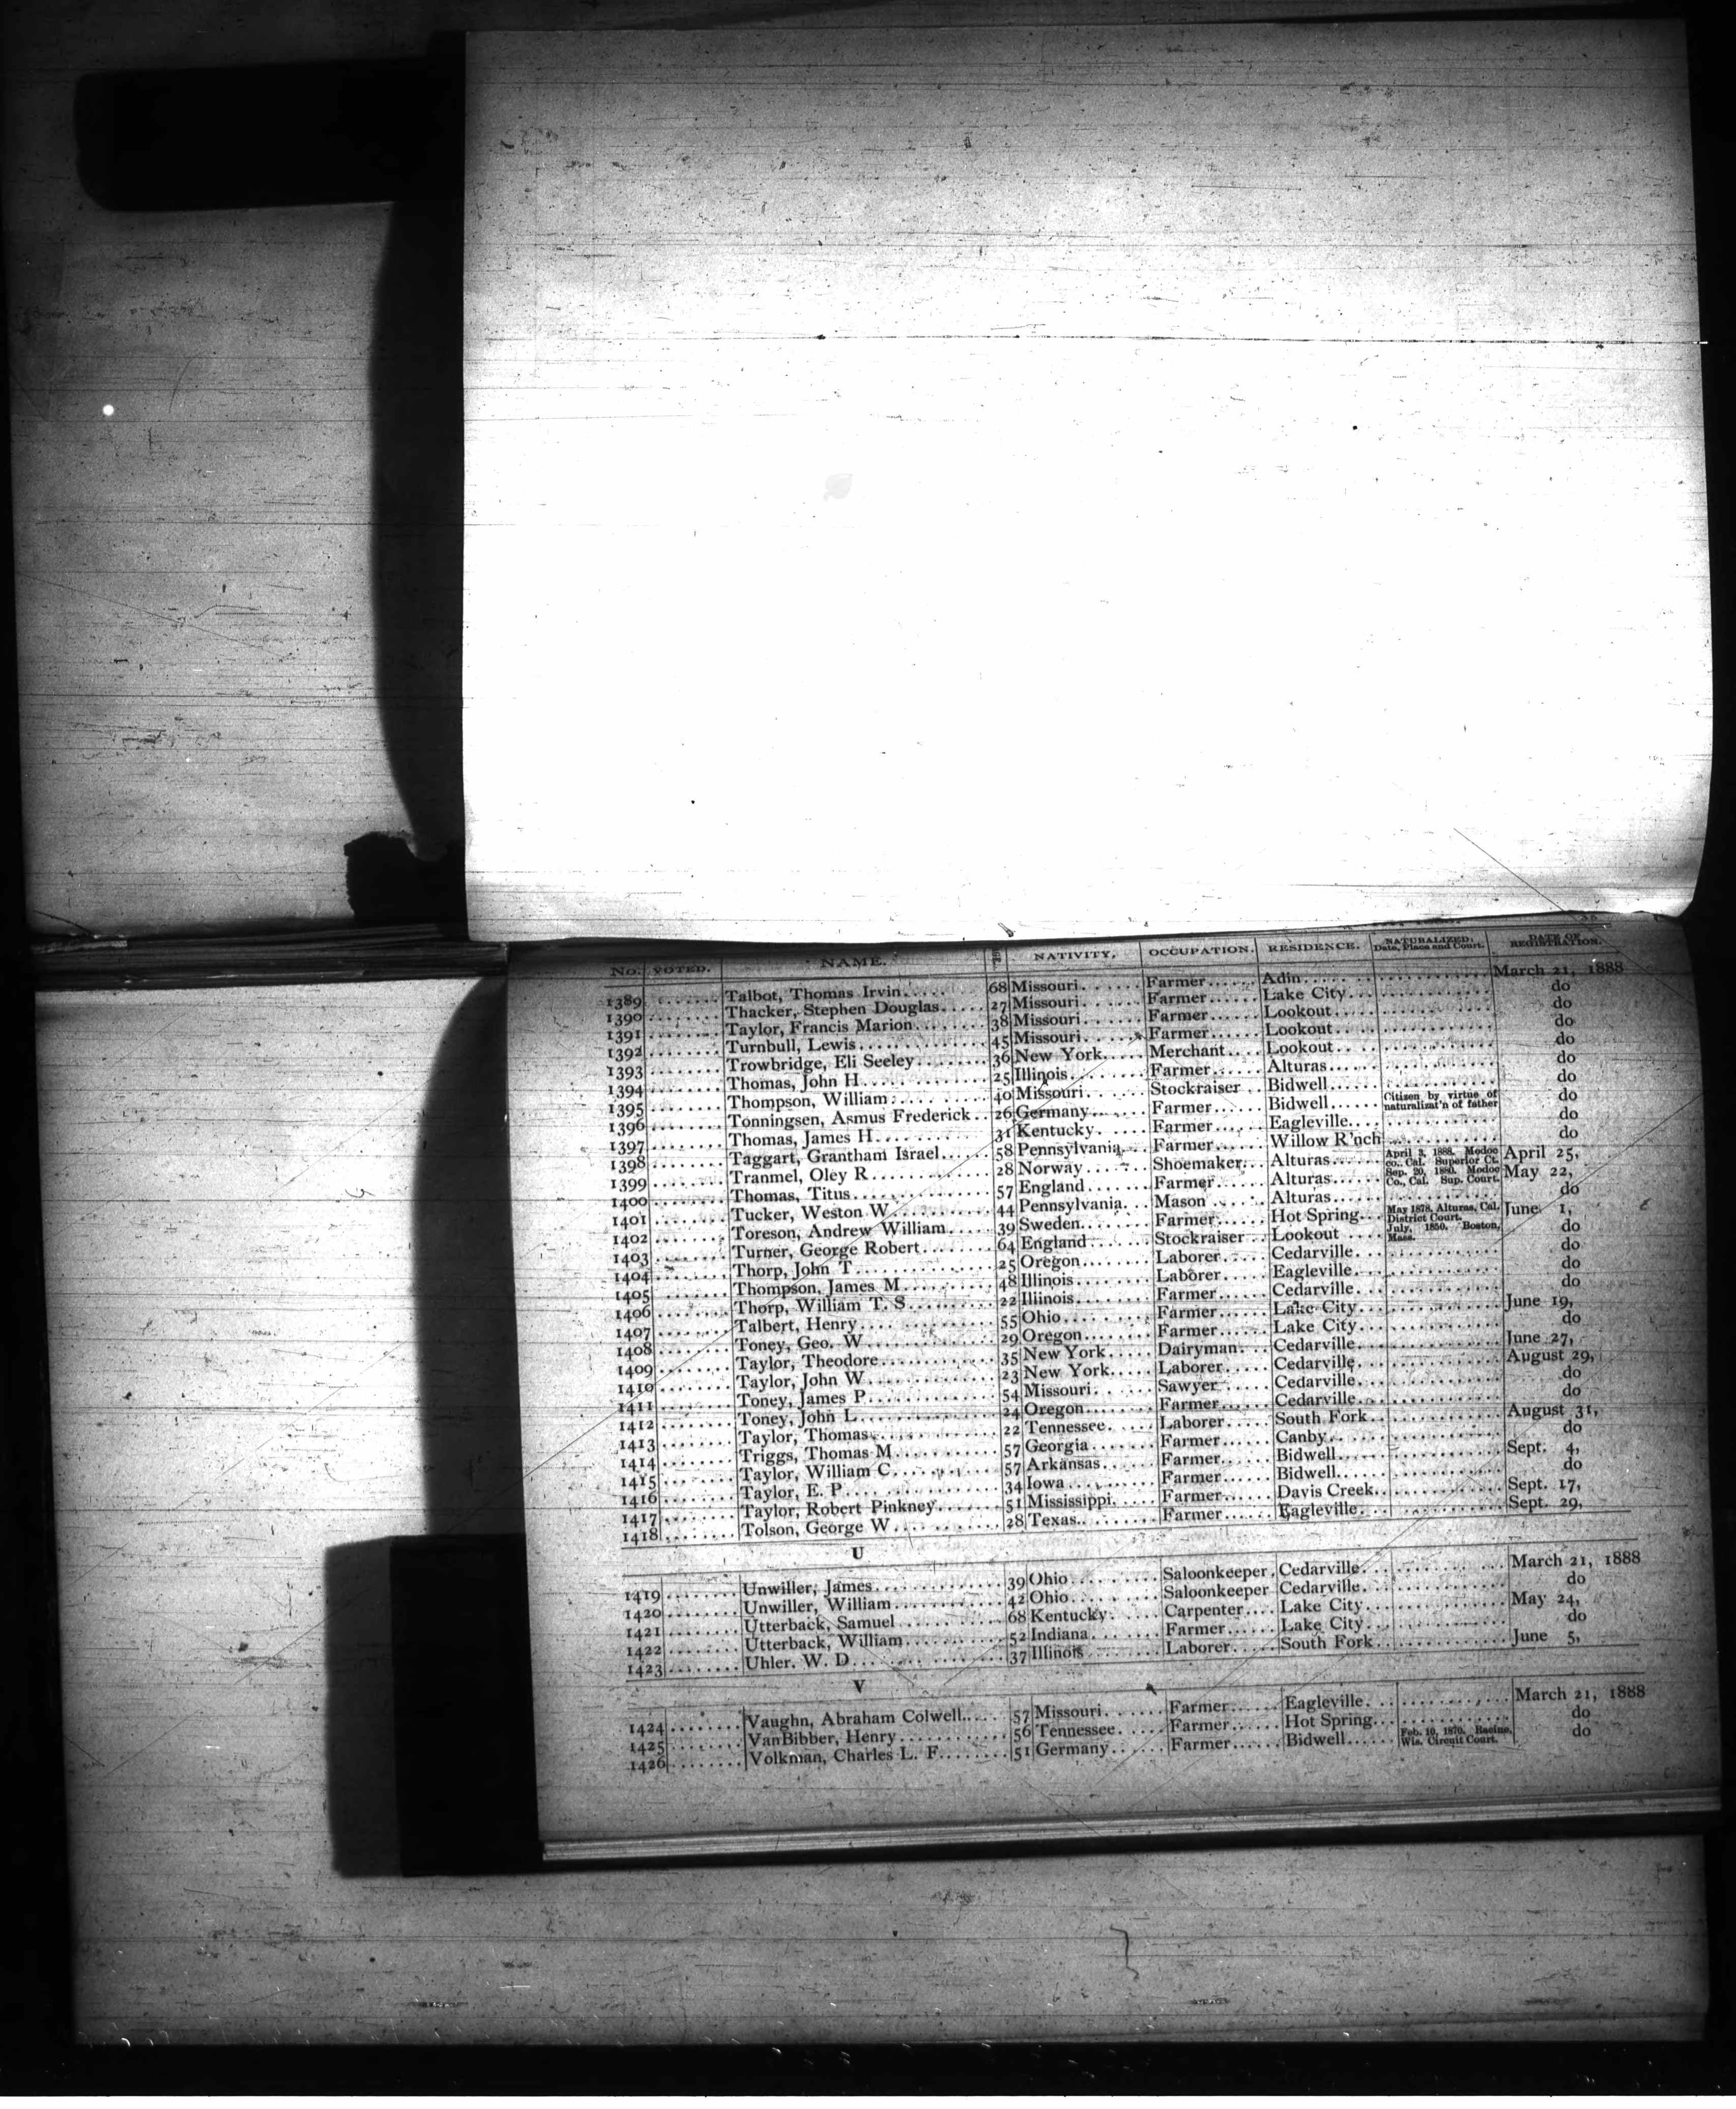 No. VOTED. NAME. AGE. NATIVITY. OCCUPATION. RESIDENCE. NATURALIZED. Date, Place and Court. DATE OF REGISTRATION.
1389 Talbot, Thomas Irvin 68 Missouri Farmer Adin March 21, 1888
1390 Thacker, Stephen Douglas 27 Missouri Farmer Lake City do
1391 Taylor, Francis Marion 38 Missouri Farmer Lookout do
1392 Turnbull, Lewis 45 Missouri Farmer Lookout do
1393 Trowbridge, Eli Seeley 36 New York Merchant Lookout do
1394 Thomas, John H 25 Illinois Farmer Alturas do
1395 Thompson, William 40 Missouri Stockraiser Bidwell do
1396 Tonningsen, Asmus Frederick 26 Germany Farmer Bidwell Citizen by virtue of naturalizat'n of father do
1397 Thomas, James H 31 Kentucky Farmer Eagleville do
1398 Taggart, Grantham Israel 58 Pennsylvania Farmer Willow R'nch do
1399 Tranmel, Oley R 28 Norway Shoemaker Alturas April 3, 1888. Modoc co., Cal. Superior Ct. April 25,
1400 Thomas, Titus 57 England Farmer Alturas Sep. 20, 1880. Modoc Co., Cal. Sup. Court. May 22,
1401 Tucker, Weston W 44 Pennsylvania Mason Alturas do
1402 Toreson, Andrew William 39 Sweden Farmer Hot Spring May 1878, Alturas, Cal. District Court. June 1,
1403 Turner, George Robert 64 England Stockraiser Lookout July, 1850. Boston, Mass. do
1404 Thorp, John T 25 Oregon Laborer Cedarville do
1405 Thompson, James M 48 Illinois Laborer Eagleville do
1406 Thorp, William T. S 22 Illinois Farmer Cedarville do
1407 Talbert, Henry 55 Ohio Farmer Lake City June 19,
1408 Toney, Geo. W 29 Oregon Farmer Lake City do
1409 Taylor, Theodore 35 New York Dairyman Cedarville June 27,
1410 Taylor, John W 23 New York Laborer Cedarville August 29,
1411 Toney, James P 54 Missouri Sawyer Cedarville do
1412 Toney, John L 24 Oregon Farmer Cedarville do
1413 Taylor, Thomas 22 Tennessee Laborer South Fork August 31,
1414 Triggs, Thomas M 57 Georgia Farmer Canby do
1415 Taylor, William C 57 Arkansas Farmer Bidwell Sept. 4,
1416 Taylor, E. P 34 Iowa Farmer Bidwell do
1417 Taylor, Robert Pinkney 51 Mississippi Farmer Davis Creek Sept. 17,
1418 Tolson, George W 28 Texas Farmer Eagleville Sept. 29,
U
1419 Unwiller, James 39 Ohio Saloonkeeper Cedarville March 21, 1888
1420 Unwiller, William 42 Ohio Saloonkeeper Cedarville do
1421 Utterback, Samuel 68 Kentucky Carpenter Lake City May 24,
1422 Utterback, William 52 Indiana Farmer Lake City do
1423 Uhler. W. D 37 Illinois Laborer South Fork June 5,
V
1424 Vaughn, Abraham Colwell 57 Missouri Farmer Eagleville March 21, 1888
1425 VanBibber, Henry 56 Tennessee Farmer Hot Spring do
1426 Volkman, Charles L. F 51 Germany Farmer Bidwell Feb. 10, 1870. Racine, Wis. Circuit Court. do